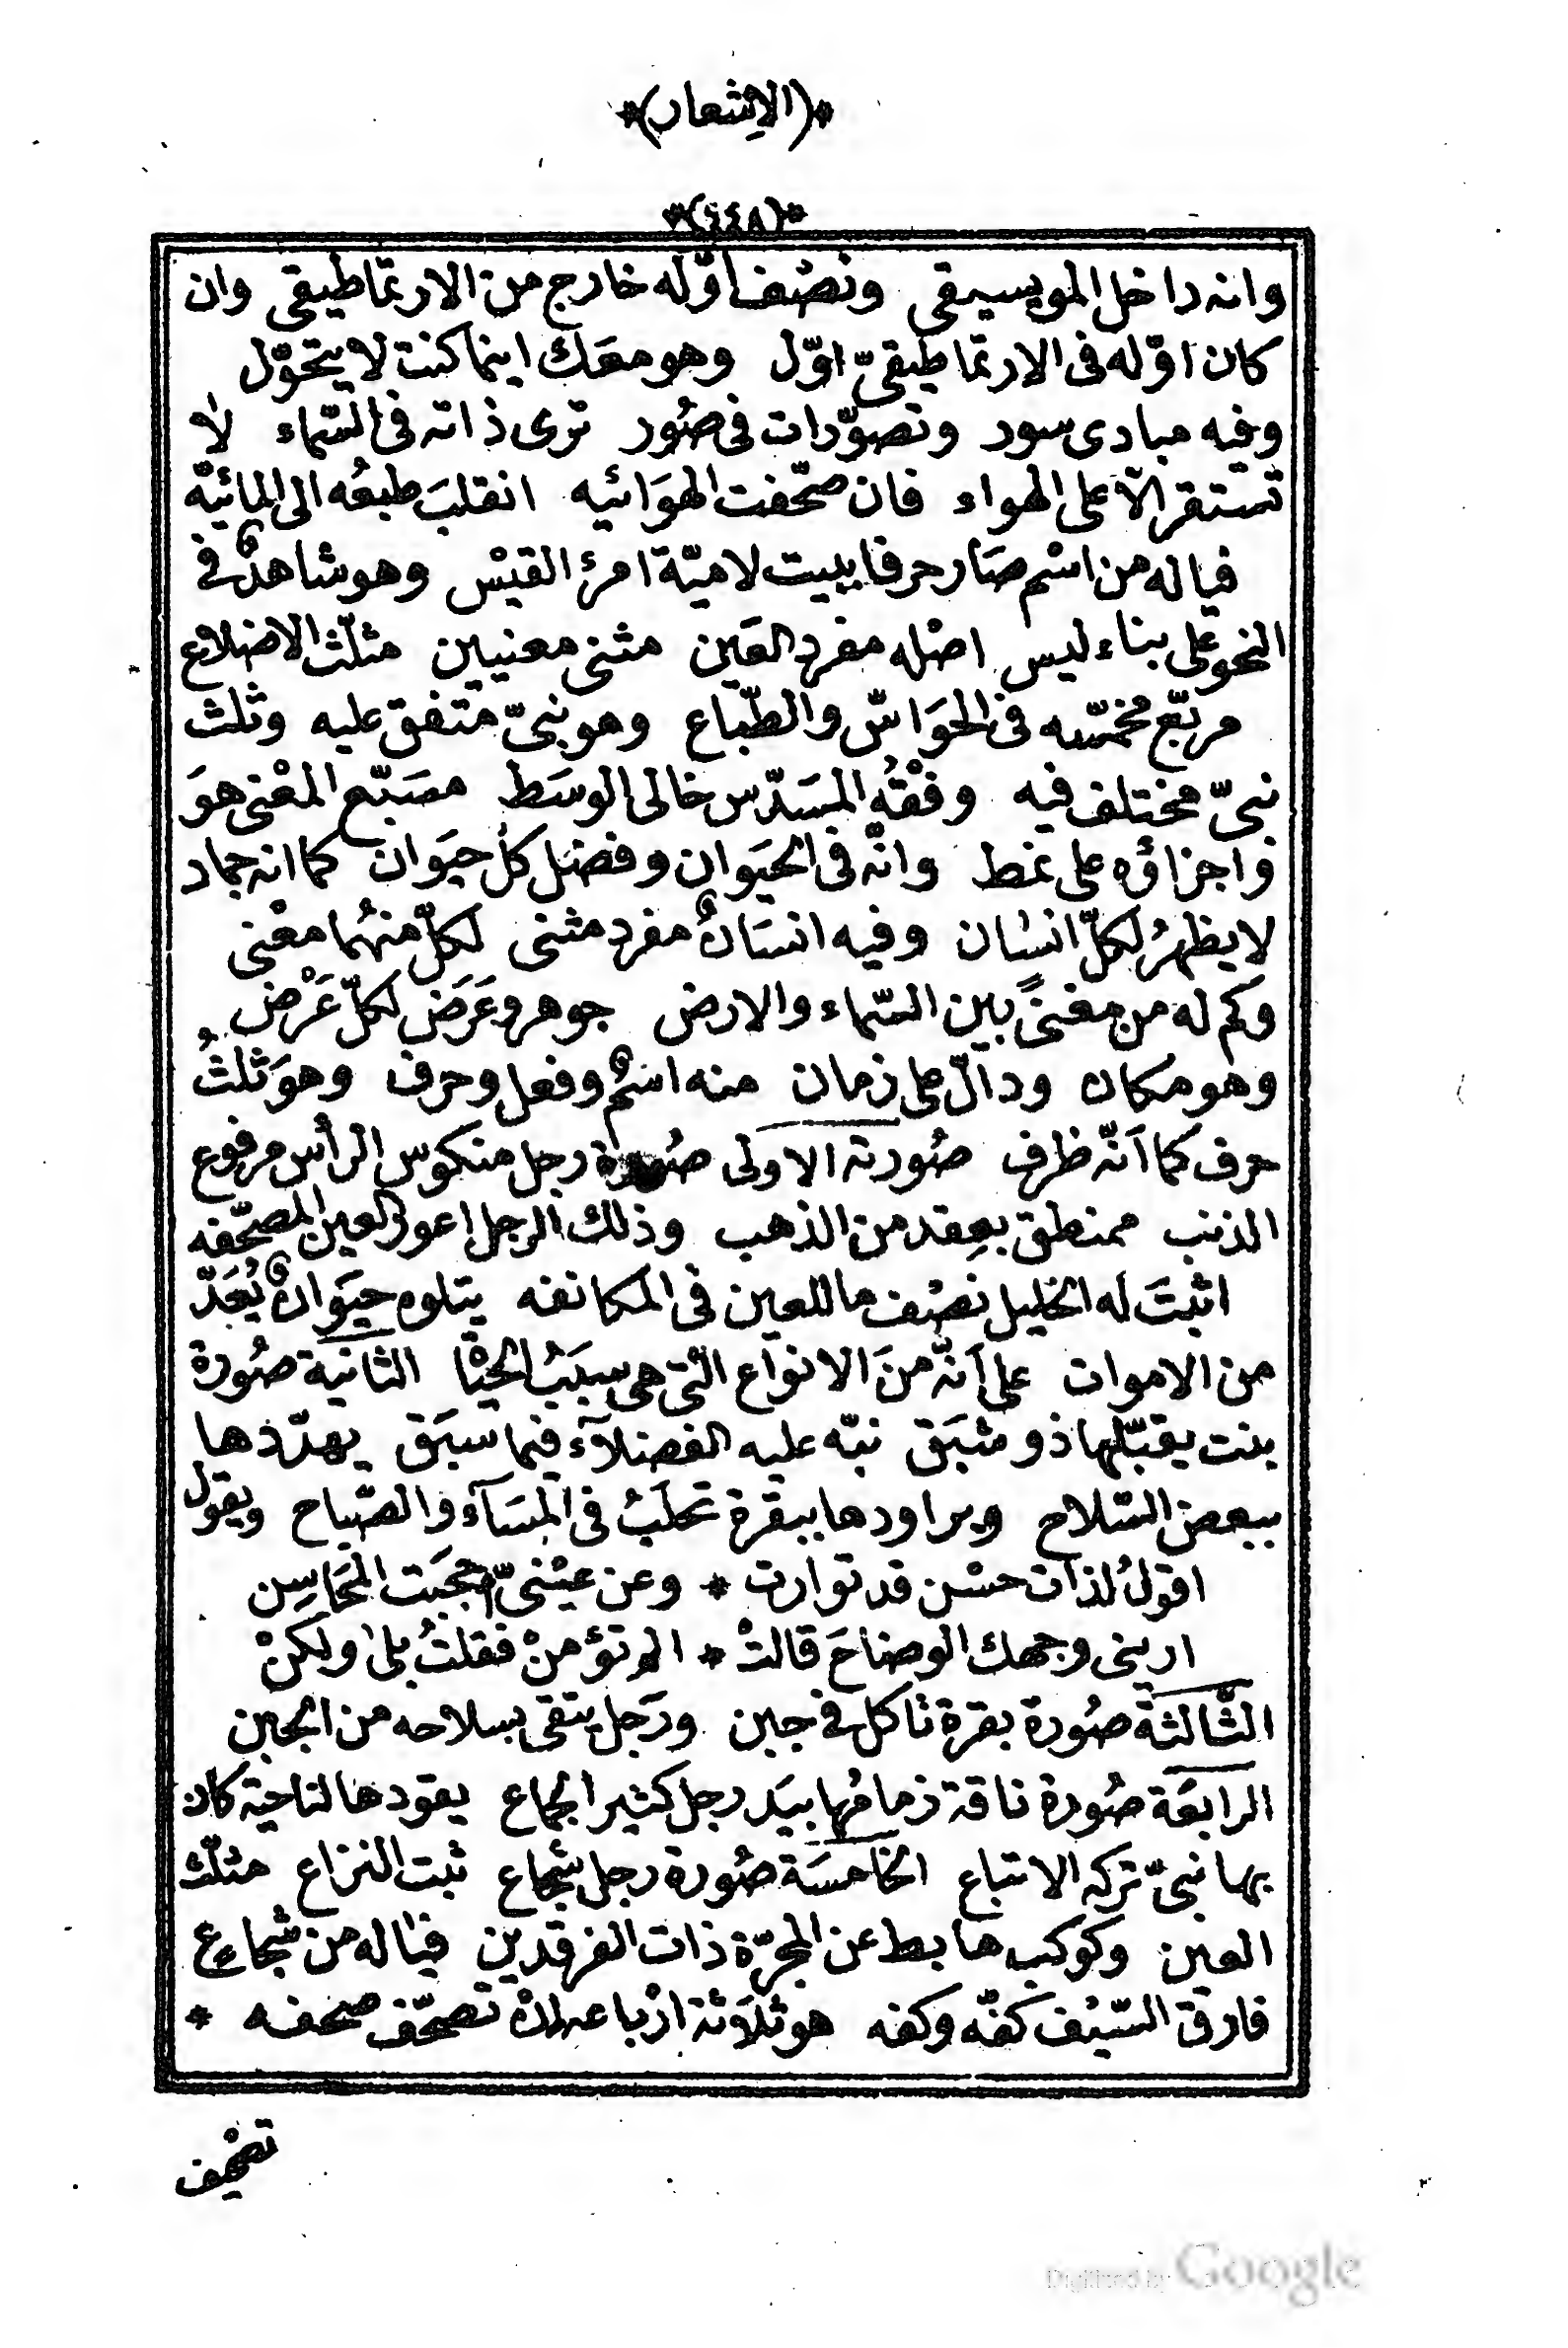 *(الاشعار)*
*(٦٤٨)*
وانه داخل الموسيقى ونصْف اوّله خارج من الارتماطيقى وان
كان اوّله فى الارتماطيقىّ اوّل وهو معَك اينما كنت لا يتحوّل
وفيه مبادى سود وتصوّرات فى صُور ترى ذاته فى السّماء لا
تستقر الّا على الهواء فان صحّفت الهوَائيه انقلبَ طبعُه الى المائيّه
فياله من اسْم صَار حرفا ببيت لاميّة امرئ القيْس وهو شاهدٌ فى
النحو على بناء ليس اصْله مفرد العَين مثنى معنيين مثلّث الاضلاع
مربّع مخمّسه فى الحوَاسّ والطّباع وهو نبىّ متفق عليه وثلث
نبىّ مختلف فيه وفْقُه المسَدّس خالى الوسَط مسَبّع المعْنى هوَ
واجزاؤه على نمط وانّه فى الحيَوان وفضل كلّ حيَوان كما انه جماد
لا يظهرُ لكلّ انسان وفيه انسَانٌ مفرد مثنى لكلّ منهُما معْنى
وكم له من مغنىً بين السّماء والارض جوهر وعَرَض لكلّ عَرْض
وهو مكان ودالّ على زمان منه اسْمٌ وفعل وحرف وهوَ ثلثُ
حرف كما اَنّه ظرف صُورته الاولى صُورة رجل منكوس الرأس مرفوع
الذنب ممنطق بعِقد من الذهب وذلك الرجل اعور العين المصحّفه
اثبتَ له الخليل نصْف ما للعين فى المكانفه يتلوه حيَوانٌ يُعَدّ
من الاموات على اَنّه منَ الانواع الّتى هى سببُ الحيْا الثانيَة صُورة
بنت يقبّلها ذو شبَق نبّه عليه الفضلآء فيما سبَق يهدّدها
ببعض السّلاح ويراودها ببقرة تحلَبُ فى المسَآء والصّباح ويقول
اقولُ لذات حسْن قد توارت * وعن عيْنىّ احجبَت المحَاسِن
ارينى وجهك الوضاحَ قالتْ * الم تؤمنْ فقلتُ بلى ولكنْ
الثّالثة صُورة بقرة تاكل فى جبن ورَجل يتقى بسلاحه من الجبن
الرابعَة صُورة ناقة زمامُها بيَد رجل كثير الجماع يقودها لناحية كان
بها نبىّ تركه الاتباع الخامسَة صُورة رجل شجاع ثبت النزاع مثلّث
العين وكوكب هابط عن المجرّة ذات الفرقدين فياله من شجاع
فارق السّيْف كفّه وكفه هو ثلاَثة ارْباعه اِنْ تصحّف صحفه *
تصْحيف
Digitized by Google